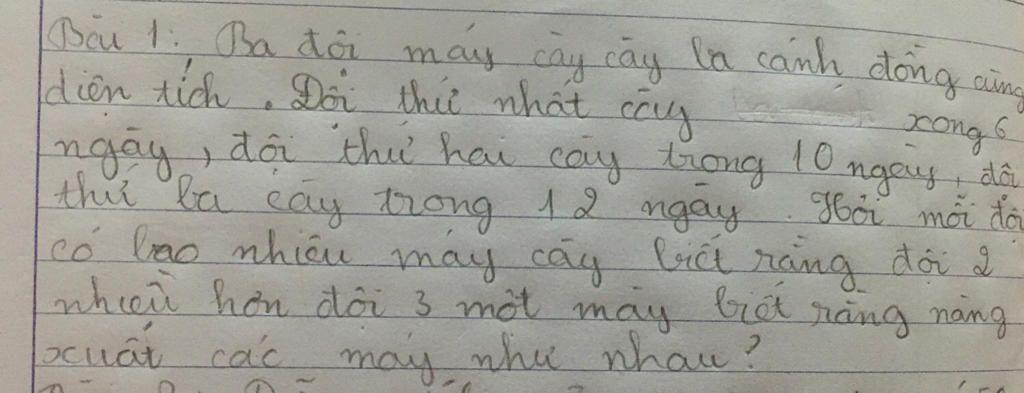 Bài 1: Ba đội máy cày cày ba cánh đồng cùng
diện tích. Đội thứ nhất cày xong 6
ngày, đội thứ hai cày trong 10 ngày, đội
thứ ba cày trong 12 ngày. Hỏi mỗi đội
có bao nhiêu máy cày biết rằng đội 2
nhiều hơn đội 3 một máy biết rằng năng
xuất các máy như nhau?